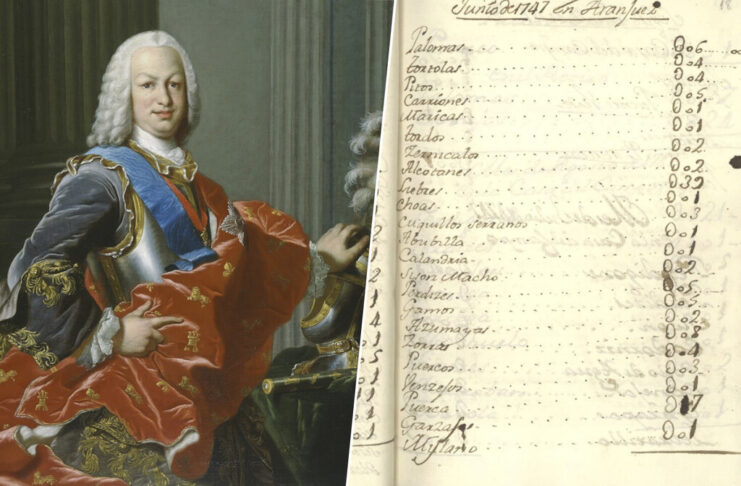 Junio de 1747 en Aranjuez
18
Palomas 006
tortolas 004
Pitos 004
Carriones 005
Maricas 001
tordos 001
Zernicalos 002
Alcotanes 002
Liebres 032
Choas 001
Cuquillos serranos 003
Abubilla 001
Calandria 001
Sison Macho 002
Perdizes 005
Gamos 003
Azumayas 002
Zorras 008
Puercos 004
Venzejos 003
Puerca 001
Garzas 017
Mylano 001